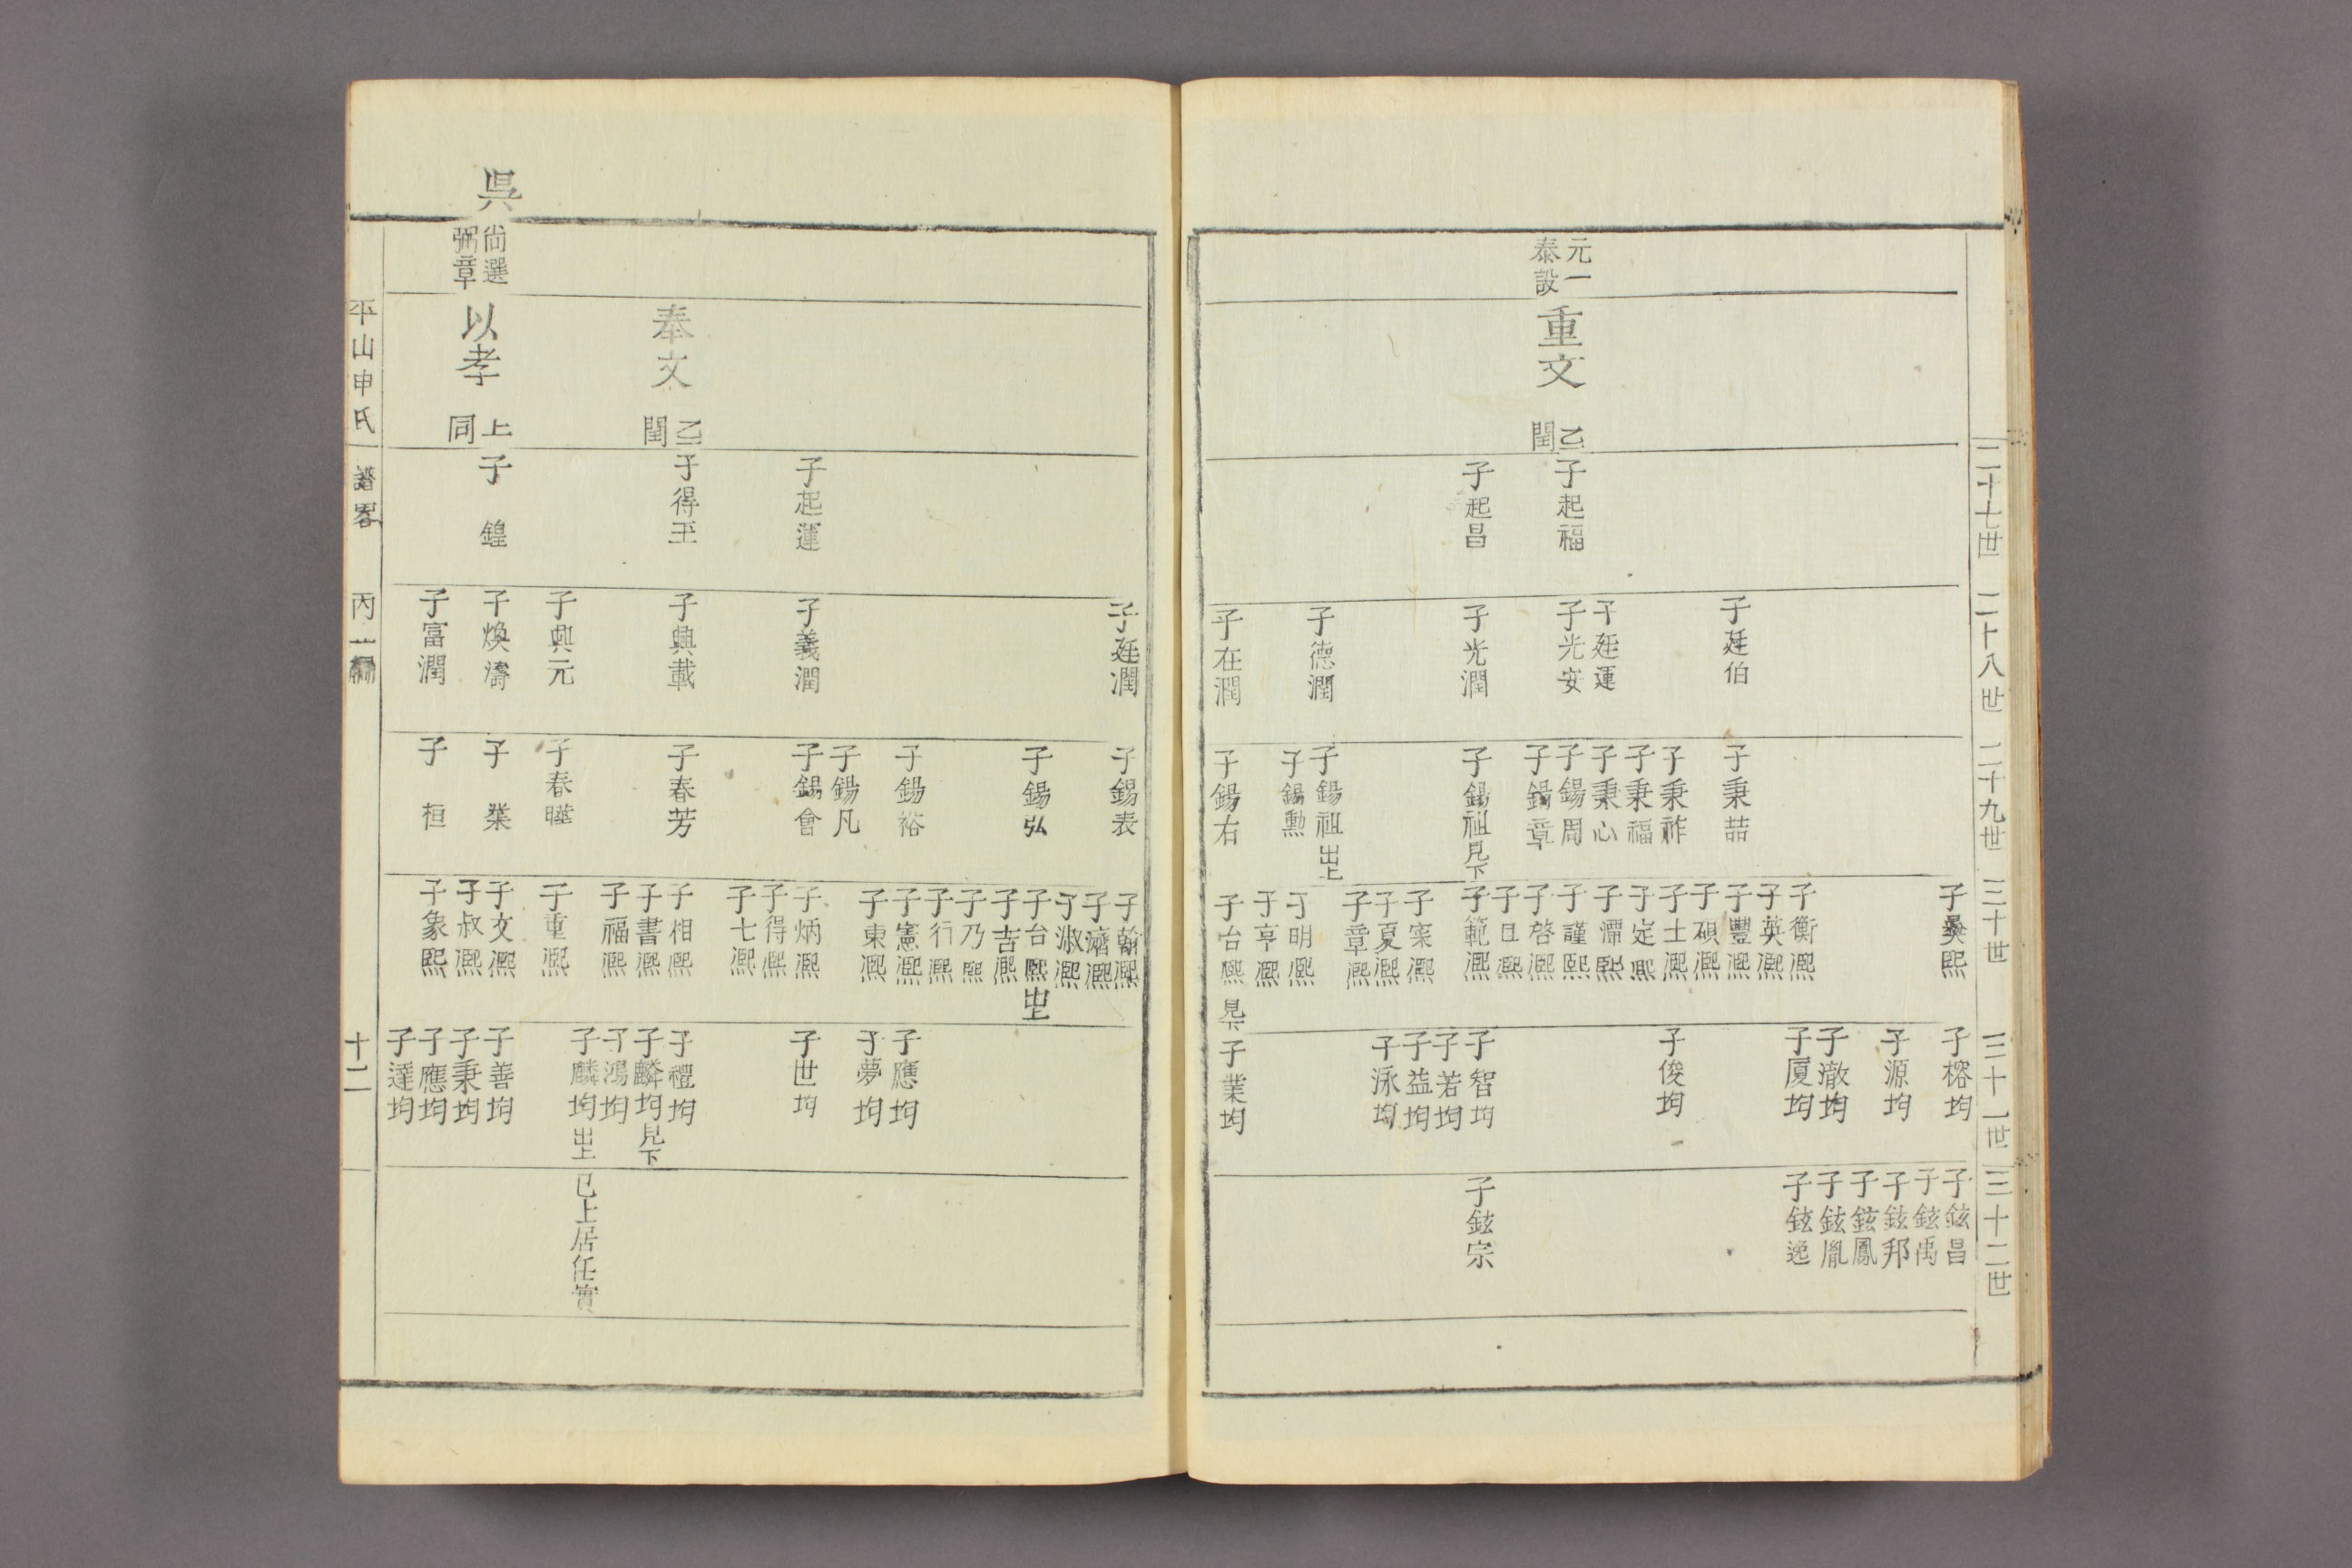 二十七世
二十八世
二十九世
三十世
三十一世
三十二世
元一
泰設
重文
乙
閏
子起福
子起昌
子廷伯
子廷運
子光安
子光潤
子德潤
子在潤
子秉喆
子秉祚
子秉福
子秉心
子錫周
子錫章
子錫祖見下
子錫祖出上
子錫勲
子錫右
子彝熙
子衡熙
子英熙
子豐熙
子碩熙
子士熙
子定熙
子霈熙
子謹熙
子啓熙
子日熙
子範熙
子寀熙
子夏熙
子章熙
子明熙
子亨熙
子台熙見下
子榕均
子源均
子澈均
子厦均
子俊均
子智均
子若均
子益均
子泳均
子業均
子鉉昌
子鉉禹
子鉉邦
子鉉鳳
子鉉胤
子鉉逸
子鉉宗
奉文
乙
閏
吳
尙選
弼章
以孝
上
同
子起運
子得玉
子鍠
子廷潤
子義潤
子興載
子興元
子煥濤
子富潤
子錫表
子錫弘
子錫裕
子錫凡
子錫會
子春芳
子春曄
子業
子桓
子翰熙
子濟熙
子淑熙
子台熙出上
子吉熙
子乃熙
子行熙
子憲熙
子東熙
子炳熙
子得熙
子七熙
子相熙
子書熙
子福熙
子重熙
子文熙
子叔熙
子象熙
子應均
子夢均
子世均
子禮均
子麟均見下
子鴻均
子麟均出上
子善均
子秉均
子應均
子達均
已上居任實
平山申氏
譜畧
丙編
十二